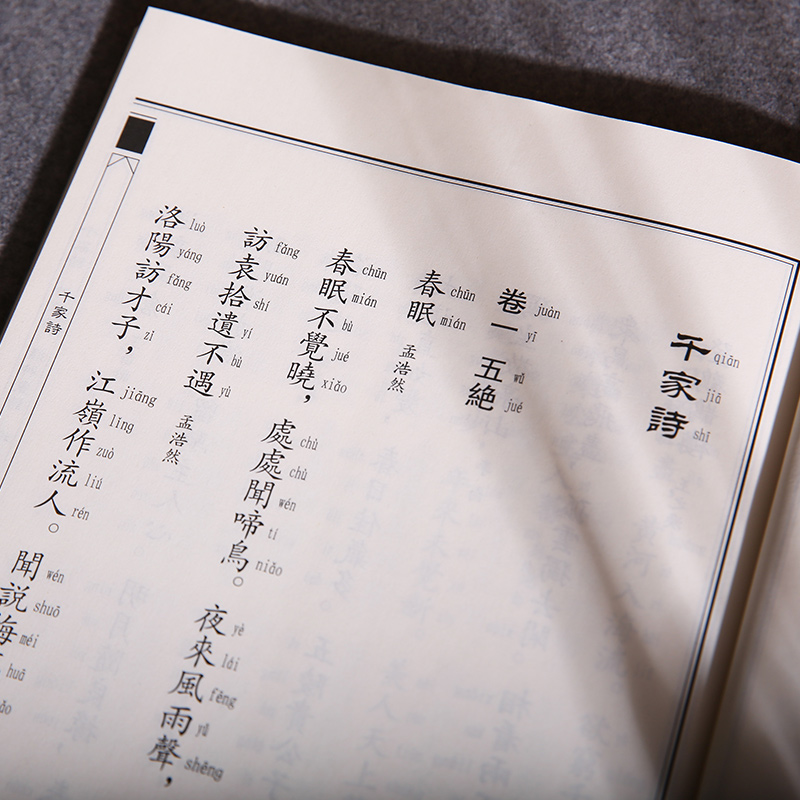 千家詩
qiān jiā shī
卷一 五絶
juàn yī wǔ jué
春眠 孟浩然
chūn mián
春眠不覺曉，處處聞啼鳥。夜來風雨聲，
chūn mián bù jué xiǎo chù chù wén tí niǎo yè lái fēng yǔ shēng
訪袁拾遺不遇 孟浩然
fǎng yuán shí yí bù yù
洛陽訪才子，江嶺作流人。聞説梅
luò yáng fǎng cái zǐ jiāng lǐng zuò liú rén wén shuō méi huā
千家詩